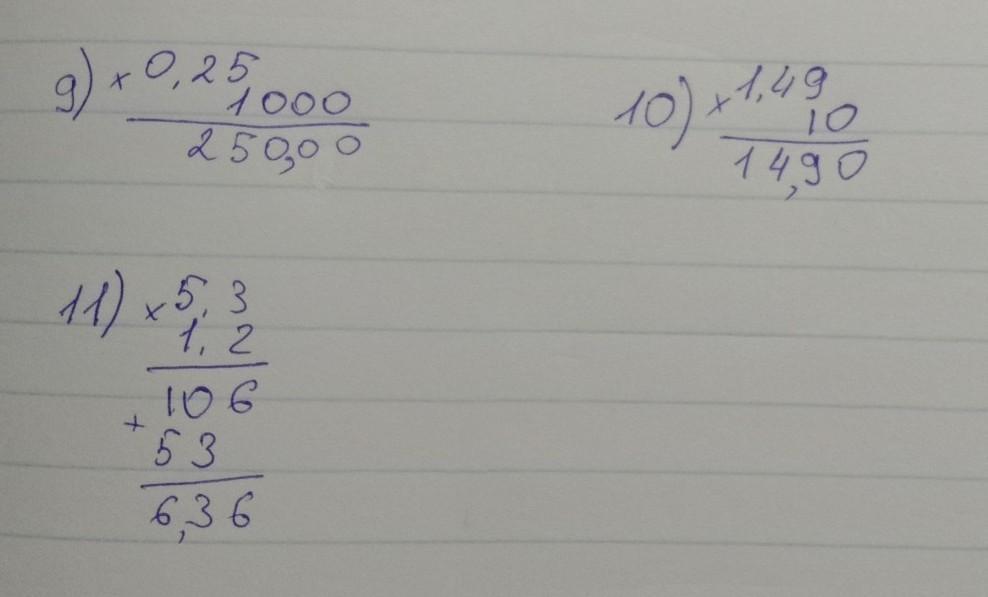 9) × 0,25
1000
250,00
10) × 1,49
10
14,90
11) × 5,3
1,2
106
+
53
6,36